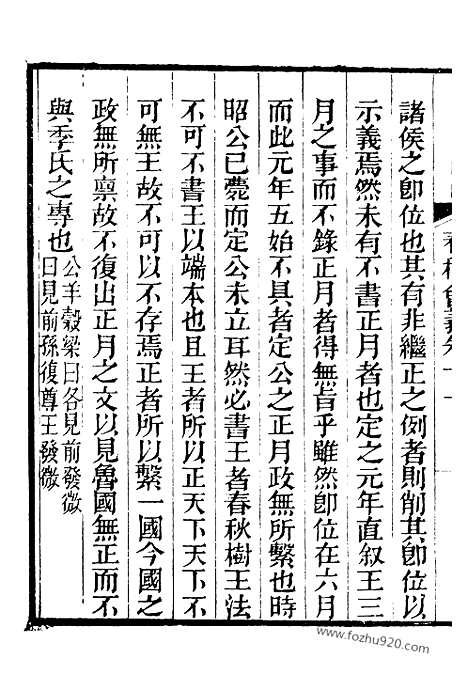 諸侯之卽位也其有非繼正之例者則削其卽位以
示義焉然未有不書正月者也定之元年直叙王三
月之事而不錄正月者得無旨乎雖然卽位在六月
而此元年五始不具者定公之正月政無所繫也時
昭公已薨而定公未立耳然必書王者春秋樹王法
不可不書王以端本也且王者所以正天下天下不
可無王故不可以不存焉正者所以繫一國今國之
政無所禀故不復出正月之文以見魯國無正而不
與季氏之專也公羊榖梁曰各見前發微
曰見前孫復尊王發微
www.fozhu920.com